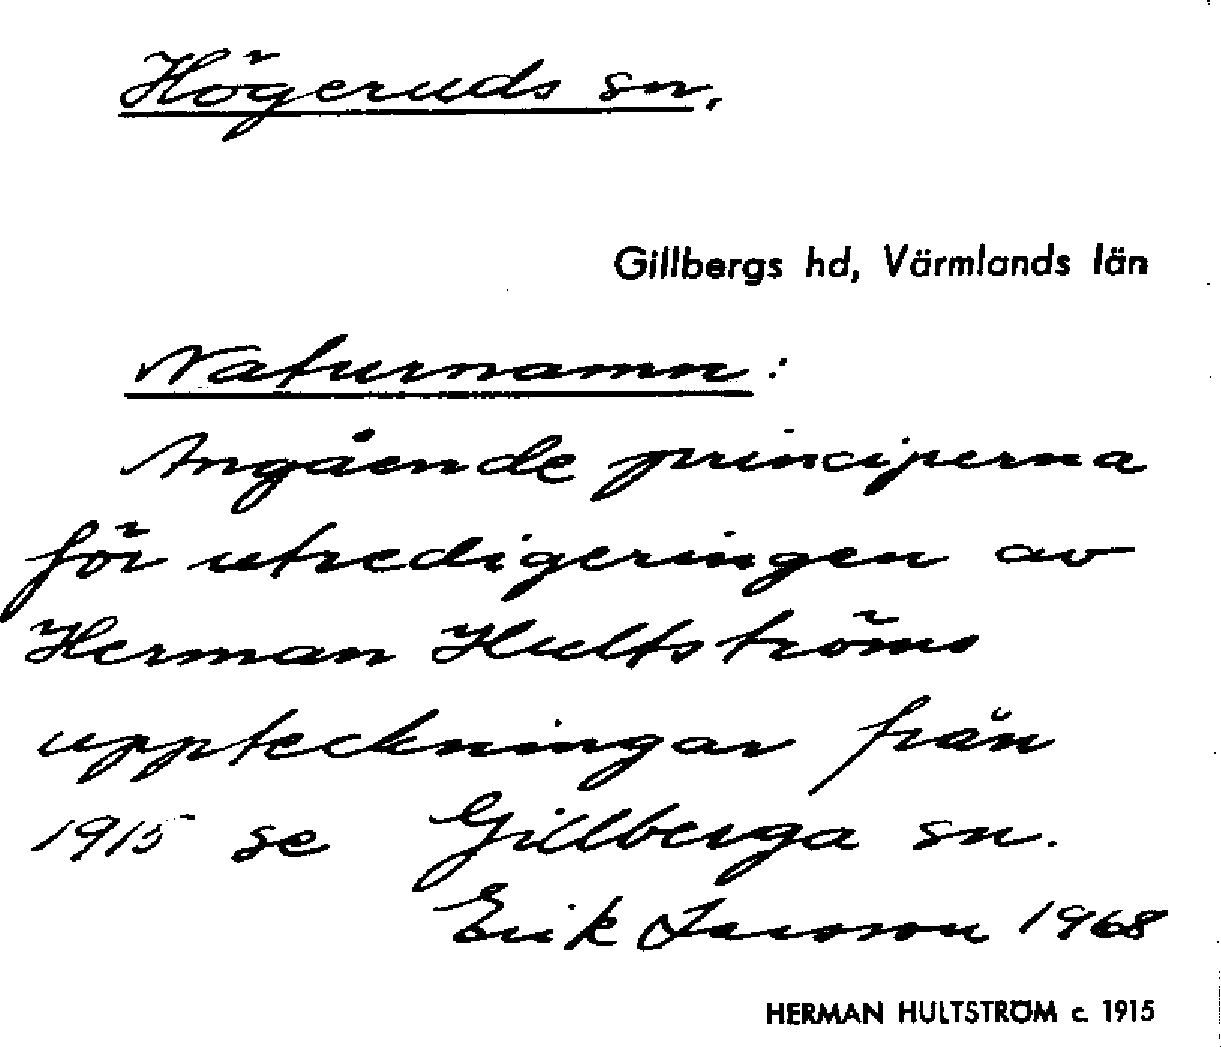 Högeruds sn.
Gillbergs hd, Värmlands län
Naturnamn:
Angående principerna
för utredigeringen av
Herman Hultströms
uppteckningar från
1915 se Gillberga sn.
Erik Larsson 1968
HERMAN HULTSTRÖM c. 1915